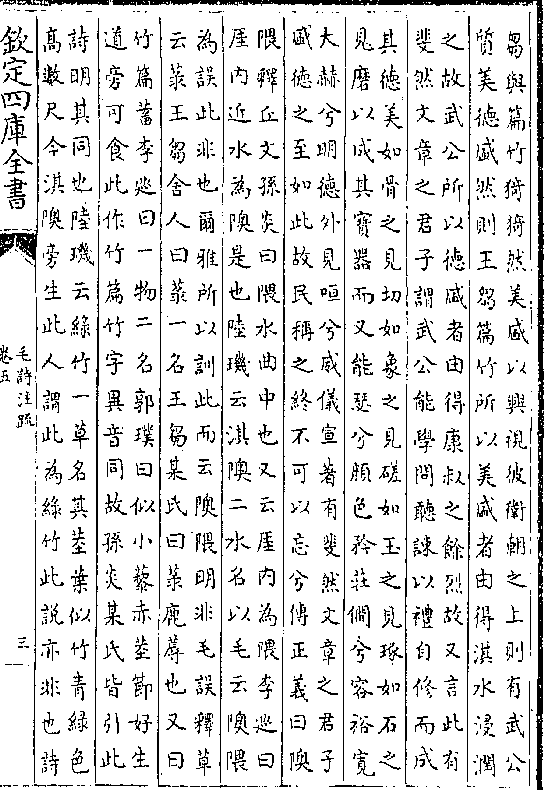 芻與篇竹猗猗然美盛以興視彼衛朝之上則有武公
質美德盛然則王芻篇竹所以美盛者由得淇水浸潤
之故武公所以德盛者由得康叔之餘烈故又言此有
斐然文章之君子謂武公能學問聽諫以禮自修而成
其德美如骨之見切如象之見磋如玉之見琢如石之
見磨以成其寶器而又能瑟兮顔色矜莊僩兮容裕寛
大赫兮明德外見咺兮威儀宣著有斐然文章之君子
盛德之至如此故民稱之終不可以忘兮傳正義曰隩
隈釋丘文孫炎曰隈水曲中也又云厓内為隈李廵曰
厓内近水為隩是也陸璣云淇隩二水名以毛云隩隈
為誤此非也爾雅所以訓此而云隩隈明非毛誤釋草
云菉王芻舍人曰菉一名王芻某氏曰菉鹿蓐也又曰
竹篇蓄李廵曰一物二名郭璞曰似小藜赤莖節好生
道旁可食此作竹篇竹字異音同故孫炎某氏皆引此
詩明其同也陸璣云綠竹一草名其莖葉似竹青緑色
高數尺今淇隩旁生此人謂此為綠竹此說亦非也詩
欽定四庫全書
毛詩注疏
卷五
三